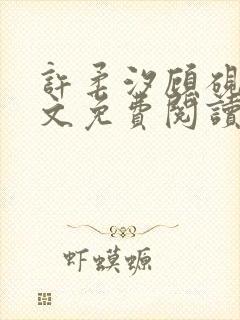 許柔汐顧硯
文免費閱讀
虾蟆螈